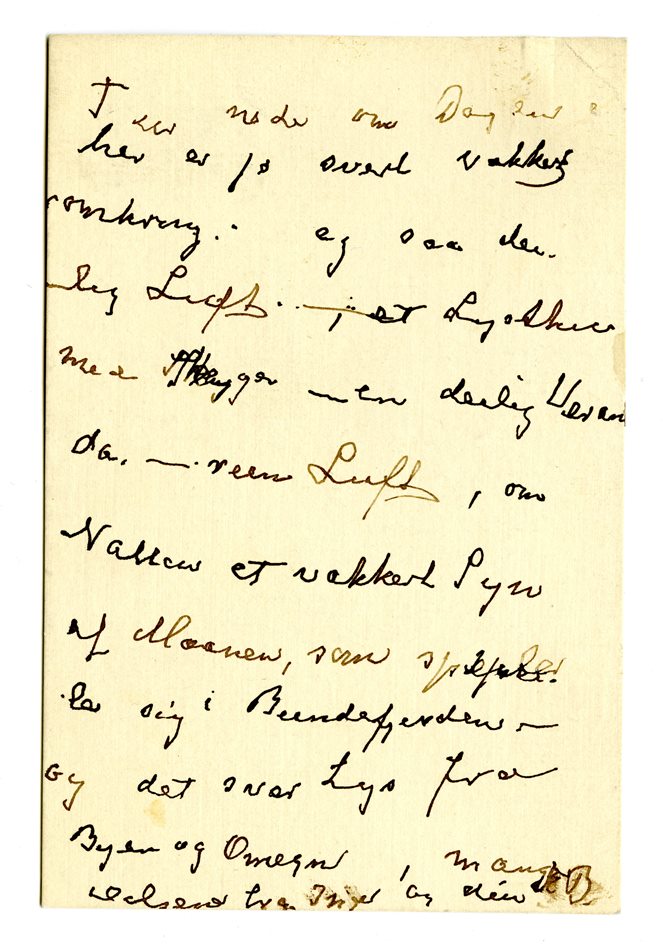 I er nede om Dagen:
her er jo svert vakkert
romkring. og saa dei-
lig Luft. — et Lysthus
med Skygge — en deilig Veran
da. — reen Luft, om
Natten et vakkert Syn
af Maanen, som speiler
ler sig i Bundefjorden —
og det svær Lys fra
Byen og Omegn, mange
velsener fra Inger og din B